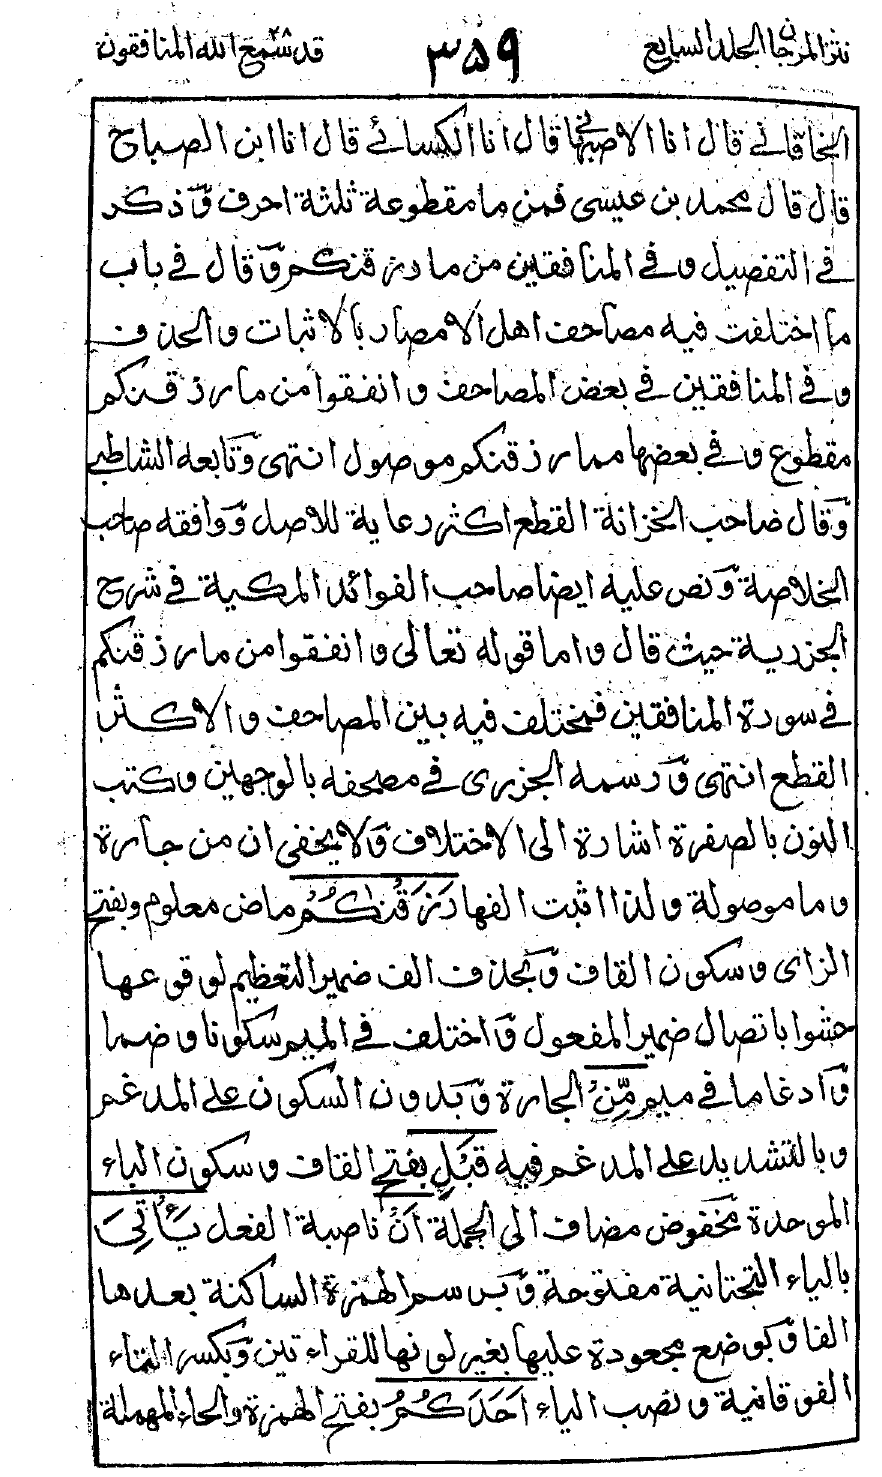 نثر المرجان الجلد السابع ٣٥٩ قد سمع الله ٢٨ المنافقون
الخاقاني قال انا الاصبهاني قال انا الكسائي قال انا ابن الصباح
قال قال محمد بن عيسى فمن ما مقطوعة ثلثة احرف وذكر
في التفصيل وفي المنافقين من ما رزقنكم وقال في باب
ما اختلفت فيه مصاحف اهل الامصار بالاثبات والحذف
وفي المنافقين في بعض المصاحف وانفقوا من ما رزقنكم
مقطوع وفي بعضها مما رزقنكم موصول انتهى وتابعه الشاطبي
وقال صاحب الخزانة القطع اكثر رعاية للاصل ووافقه صاحب
الخلاصة ونص عليه ايضا صاحب الفوائد المكية في شرح
الجزرية حيث قال واما قوله تعالى وانفقوا من ما رزقنكم
في سورة المنافقين فمختلف فيه بين المصاحف والاكثر
القطع انتهى ورسمه الجزرى في مصحفه بالوجهين وكتب
النون بالصفرة اشارة الى الاختلاف ولا يخفى ان من جارة
وما موصولة ولذا اثبت الفها رَزَقْنٰكُمْ ماض معلوم وبفتح
الزاى وسكون القاف وبحذف الف ضمير التعظيم لوقوعها
حشوا باتصال ضمير المفعول واختلف في الميم سكونا وضما
وادغاما في ميم مِّنْ الجارة وبدون السكون على المدغم
وبالتشديد على المدغم فيه قَبْلِ بفتح القاف وسكون الباء
الموحدة مخفوض مضاف الى الجملة اَنْ ناصبة الفعل يَأْتِيَ
بالياء التحتانية مفتوحة وبرسم الهمزة الساكنة بعدها
الفا وبوضع مجعودة عليها بغير لونها للقراءتين وبكسر التاء
الفوقانية ونصب الياء اَحَدَكُمُ بفتح الهمزة والحاء المهملة